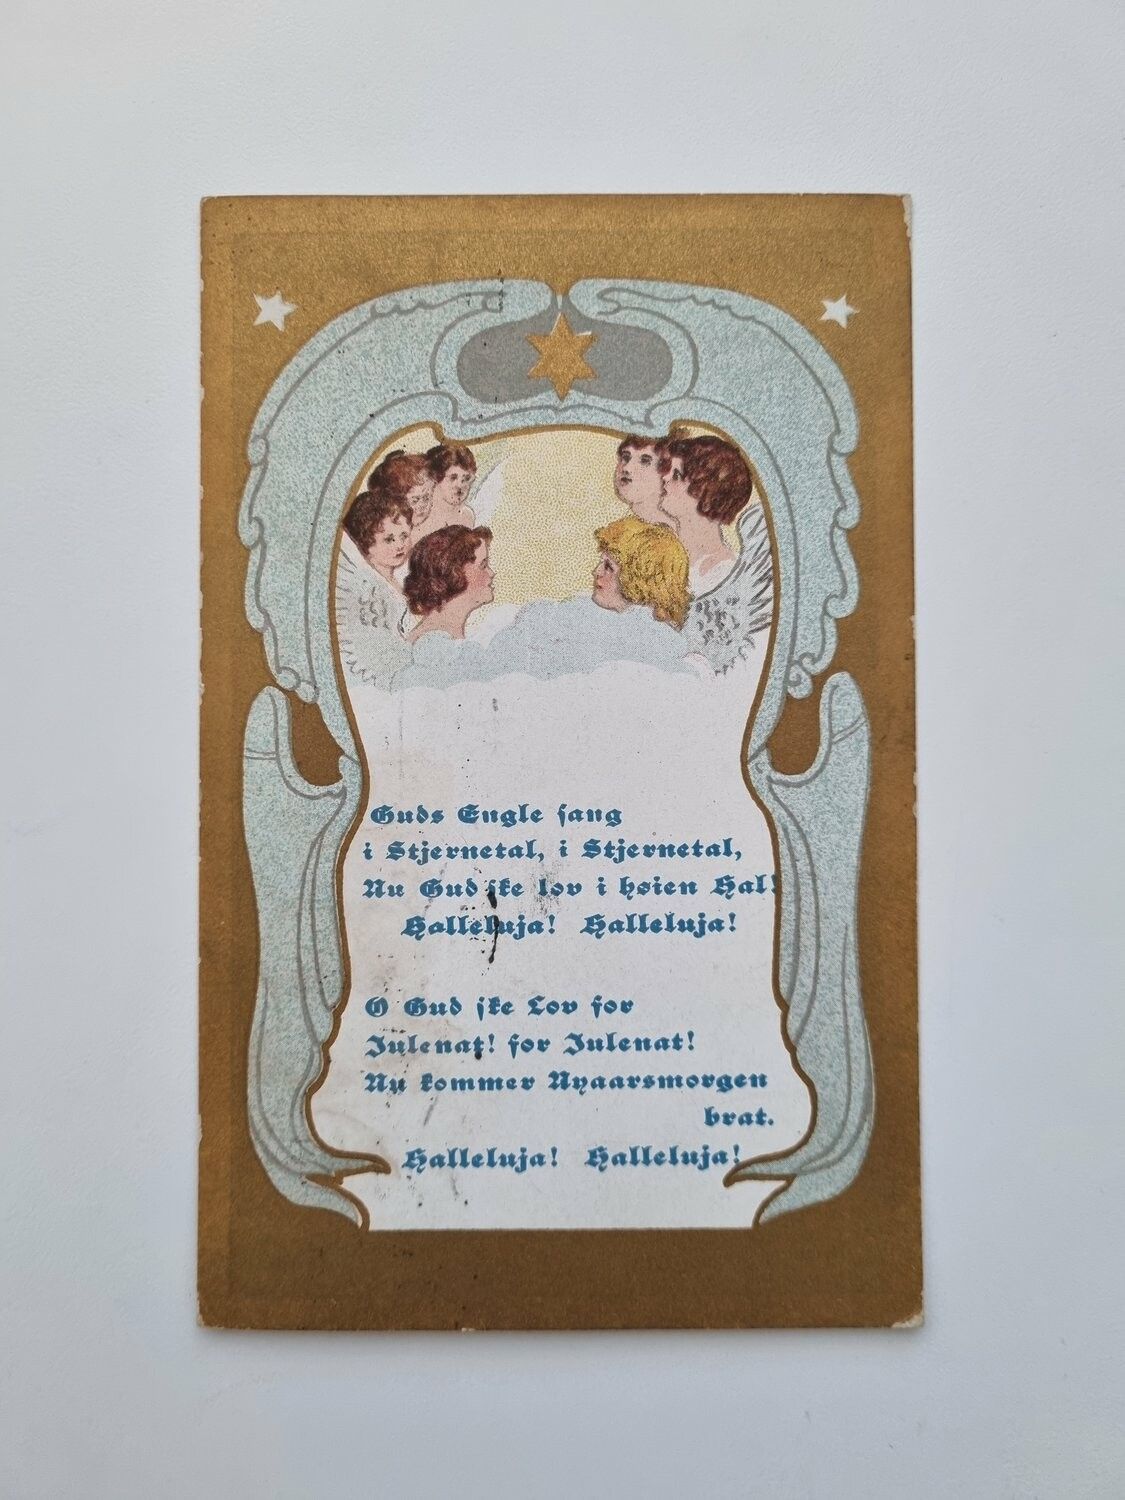 Guds Engle sang
i Stjernetal, i Stjernetal,
Nu Gud ske lov i høien Hal!
Halleluja! Halleluja!
O Gud ske Lov for
Julenat! for Julenat!
Nu kommer Nyaarsmorgen
brat.
Halleluja! Halleluja!